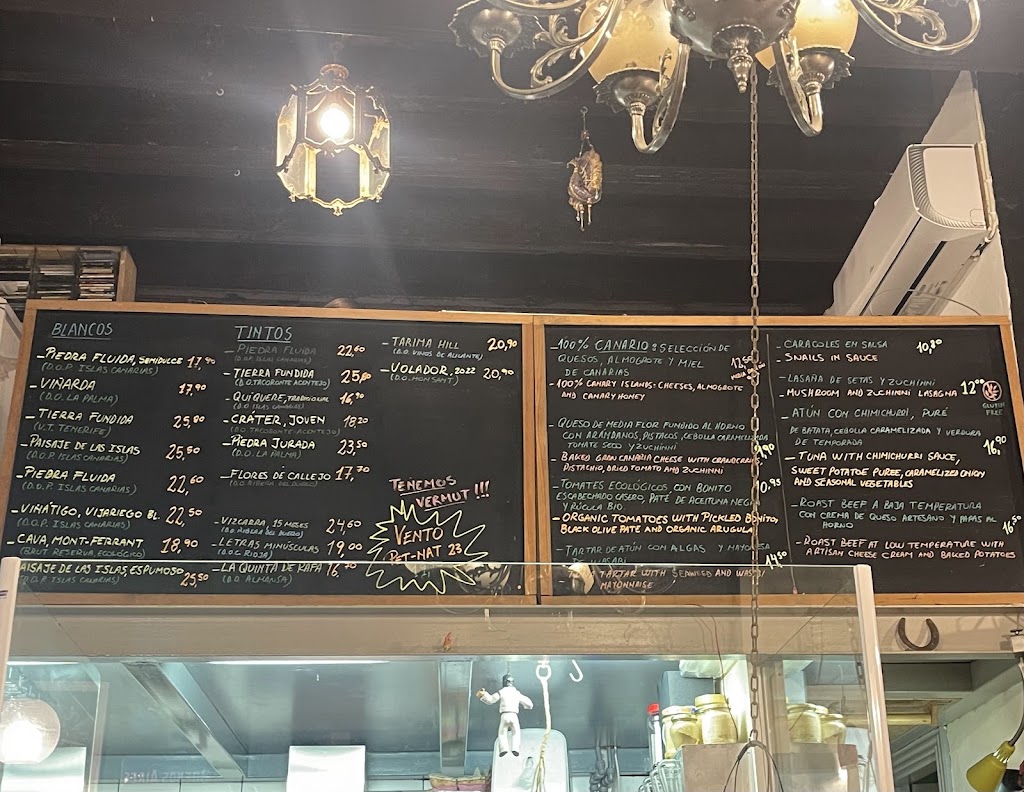 BLANCOS
- PIEDRA FLUIDA, SEMIDULCE 17,90
(D.O.P ISLAS CANARIAS)
- VIÑARDA 17,90
(D.O. LA PALMA)
- TIERRA FUNDIDA 25,80
(V.T. TENERIFE)
- PAISAJE DE LAS ISLAS 25,50
(D.O.P. ISLAS CANARIAS)
- PIEDRA FLUIDA 22,60
(D.O.P. ISLAS CANARIAS)
- VIÑÁTIGO, VIJARIEGO BL. 22,50
(D.O.P. ISLAS CANARIAS)
- CAVA, MONT-FERRANT 18,90
(BRUT RESERVA, ECOLÓGICO)
PAISAJE DE LAS ISLAS, ESPUMOSO 25,50
(D.O.P ISLAS CANARIAS)
TINTOS
- PIEDRA FLUIDA 22,60
(D.O.P. ISLAS CANARIAS)
- TIERRA FUNDIDA
(D.O. TACORONTE ACENTEJO)
- QUIQUERE, TRADICIONAL 16,90
(D.O. ISLAS CANARIAS)
- CRÁTER, JOVEN 18,20
(D.O. TACORONTE-ACENTEJO)
- PIEDRA JURADA 23,50
(D.O. LA PALMA)
- FLORES DE CALLEJO 17,70
(D.O. RIBERA DEL DUERO)
- VIZCARRA, 15 MESES 24,60
(D.O. RIBERA DEL DUERO)
- LETRAS MINÚSCULAS 19,00
(D.O.C. RIOJA)
- LA QUINTA DE RAFA 16,70
(D.O. ALMANSA)
- TARIMA HILL 20,90
(D.O. VINOS DE ALICANTE)
- VOLADOR, 2022 20,90
(D.O. MONSANT)
TENEMOS
VERMUT !!!
VENTO
PET-NAT 23
- 100% CANARIO: SELECCIÓN DE
QUESOS, ALMOGROTE Y MIEL
DE CANARIAS 12,50
- 100% CANARY ISLANDS: CHEESES, ALMOGROTE
AND CANARY HONEY
- QUESO DE MEDIA FLOR FUNDIDO AL HORNO
CON ARÁNDANOS, PISTACIOS, CEBOLLA CARAMELIZADA
TOMATE SECO Y ZUCHINNI
- BAKED GRAN CANARIA CHEESE WITH CRANBERRIES,
PISTACHIO, DRIED TOMATO AND ZUCHINNI
- TOMATES ECOLÓGICOS CON BONITO 10,95
ESCABECHADO CASERO, PATÉ DE ACEITUNA NEGRA
Y RÚCULA BIO
- ORGANIC TOMATOES WITH PICKLED BONITO,
BLACK OLIVE PATÉ AND ORGANIC ARUGULA
- TARTAR DE ATÚN CON ALGAS Y MAYONESA
WASABI 14,50
TARTAR WITH SEAWEED AND WASABI
MAYONNAISE
- CARACOLES EN SALSA 10,80
- SNAILS IN SAUCE
- LASAÑA DE SETAS Y ZUCHINNI
- MUSHROOM AND ZUCHINNI LASAGNA 12,00
GLUTEN
FREE
- ATÚN CON CHIMICHURRI, PURÉ
DE BATATA, CEBOLLA CARAMELIZADA Y VERDURA
DE TEMPORADA 16,90
- TUNA WITH CHIMICHURRI SAUCE,
SWEET POTATOE PUREE, CARAMELIZED ONION
AND SEASONAL VEGETABLES
- ROAST BEEF A BAJA TEMPERATURA
CON CREMA DE QUESO ARTESANO Y PAPAS AL
HORNO 16,50
- ROAST BEEF AT LOW TEMPERATURE WITH
ARTISAN CHEESE CREAM AND BAKED POTATOES